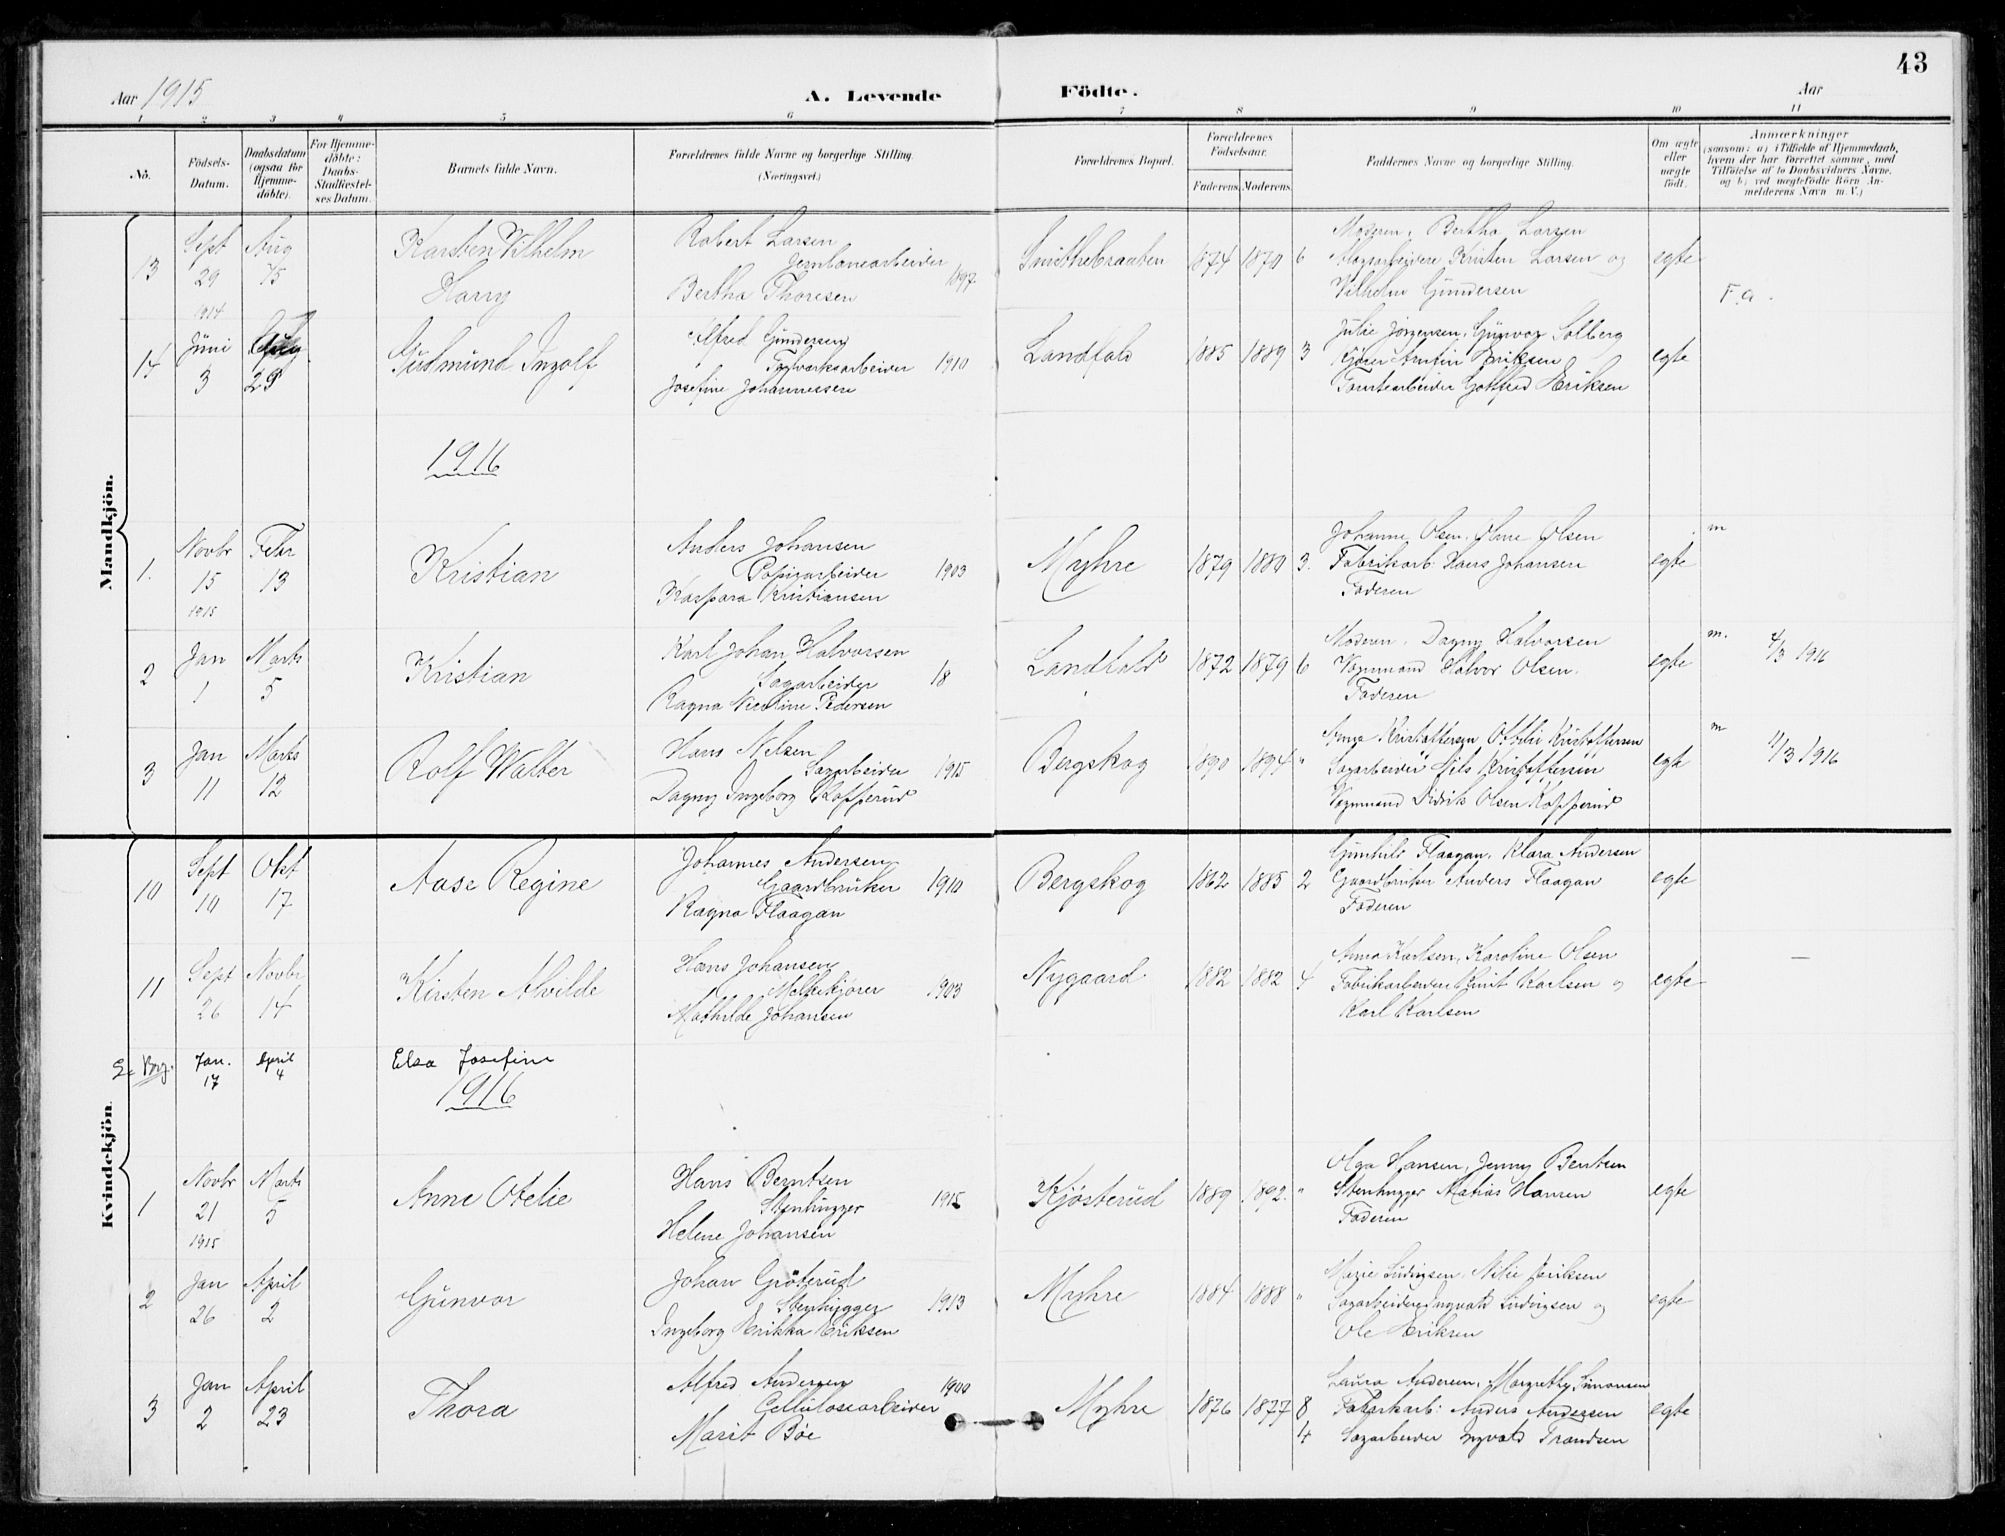 43
Aar 1915
A. Levende Födte.
Aar
1 2 3 4 5 6 7 8 9 10 11
No.
Födsels-Datum.
Daabsdatum (ogsaa for Hjemme-döbte).
For Hjemme-döbte: Daabs-Stadfæstel-ses Datum.
Barnets fulde Navn.
Forældrenes fulde Navne og borgerlige Stilling. (Næringsvei.)
Forældrenes Bopæl.
Forældrenes Födselsaar.
Faderens. Moderens.
Faddernes Navne og borgerlige Stilling.
Om ægte eller uægte födt.
Anmærkninger
(saasom: a) i Tilfælde af Hjemmedaab, hvem der har forrettet samme, med Tilföielse af to Daabsvidners Navne, og b) ved uægtefödte Börn An-melderens Navn m. V.)
Mandkjön.
13 Sept 29 1914 Aug 15 Karsten Vilhelm Harry
Robert Larsen
Jernbanearbeider 1897
Bertha Thoresen
1874 1870 6
Moderen. Bertha Larsen
Kristen Larsen og
Vilhelm Gundersen
egte
F.a.
14 Juni 3 Aug 29 Gudmund Ingolf
Alfred Gundersen
1910
Josefine Johannessen
Landfald 1885 1889 3
Julie Jörgensen, Gunvor Solberg
Eriksen
Tomtearbeider Gotfred Eriksen
egte
1916
1. Novbr 15 1915 Febr 13 Kristian
Anders Johansen
Papirarbeider 1903
Kaspara Kristiansen
Myhre 1879 1880 3.
Johanne Olsen, Olsen
Fabrikarb. Hans Johansen
Faderen
egte m
2 Jan 1 Marts 5 Kristian
Karl Johan Halvorsen
Sagarbeider 18
Ragna Nicoline Pedersen
Landfald 1872 1879 6
Moderen. Dagny Halvorsen
Vognmand Halvor Olsen.
Faderen
egte m. 4/3 1916
3 Jan 11 Marts 12 Rolf Walter
Hans Nelsen
Sagarbeider 1915
Dagny Ingeborg Kopperud
Bergskog 1890 1894 "
Anna Kristoffersen Ottilie Kristoffersen
Sagarbeider Nils Kristoffersen
Vognmand Didrik Olsen Kopperud
egte m 11/3 1916
Kvindekjön.
10 Sept 10 Okt 17 Aase Regine
Johannes Andersen
Gaardbruker 1910
Ragna Flaagan
Bergskog 1862 1885 2
Gunhild Flaagan, Klara Andersen
Gaardbruker Anders Flaagan
Faderen
egte
11 Sept 26 Novbr 14 Kirsten Alvilde
Hans Johansen
Melkekjörer 1903
Mathilde Johansen
Nygaard 1882 1882 4
Anna Karlsen, Karoline Olsen
Fabrikarbeidere Knut Karlsen og
Karl Karlsen
egte —
Jan. 17 April 4 Elsa Josefine
1916
1 Novbr 21 1915 Marts 5 Anne Otelie
Hans Berntsen
Stenhugger 1915
Helene Johansen
Kjösterud 1889 1892. "
Olga Hansen, Jenny Berntsen
Stenhugger Matias Hansen
Faderen
egte
2 Jan 26 April 2 Gunvor
Johan Gröterud
Stenhugger 1913
Ingeborg Erikka Eriksen
Myhre 1884 1888 "
Marie Ludvigsen, Eriksen
Sagarbeidere Ingvald Ludvigsen og
Ole Eriksen
egte
3 Jan 2 April 23 Thora
Alfred Andersen 1900
Cellulosearbeider
Marit Böe
Myhre 1876 1877 8 4
Laura Andersen, Margrethe Simonsen
Fabrikarb: Anders Andersen
Sagarbeider Ingvald Trondsen
egte